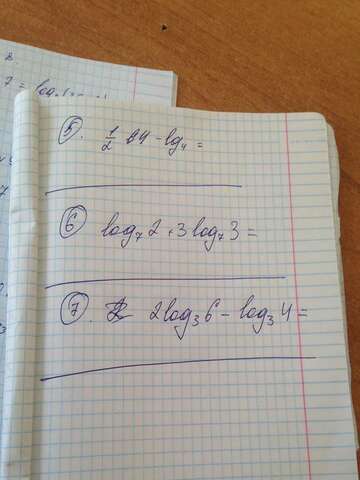 2.
7 = log
5. 1/2 - lg₄ =
6 log₇2 + 3log₇3 =
7. 2log₃6 - log₃4 =